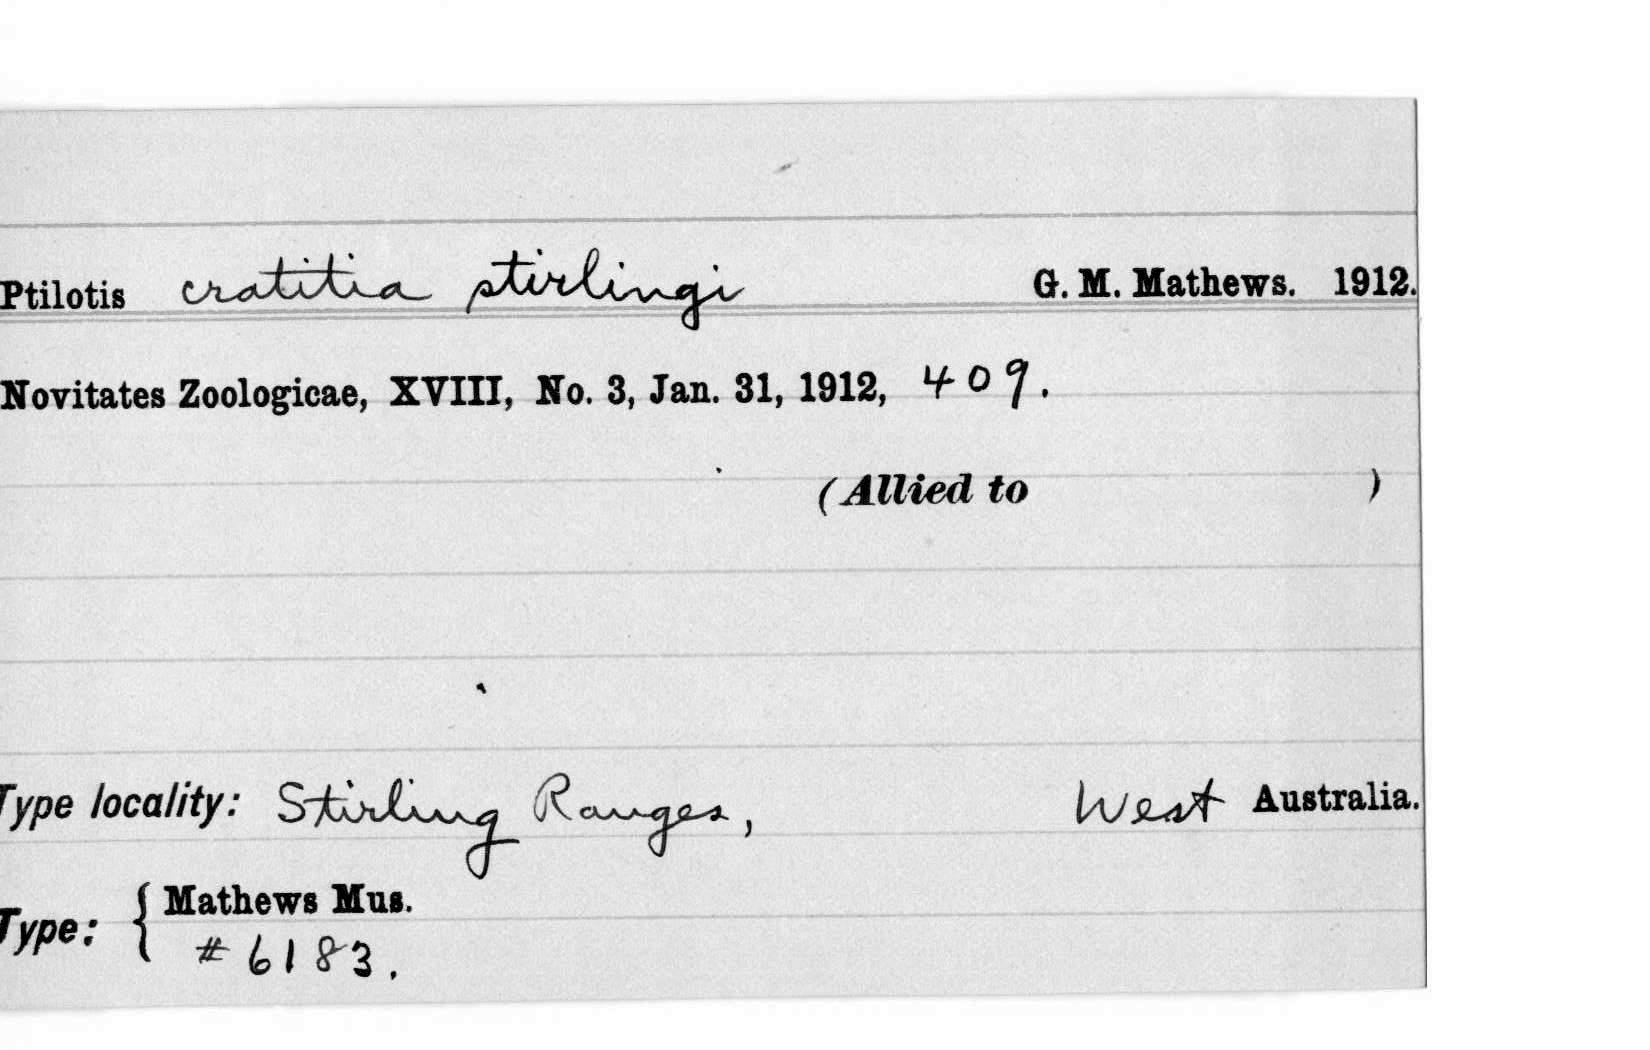 Ptilotis cratitia stirlingi G. M. Mathews. 1912.
Novitates Zoologicae, XVIII, No. 3, Jan. 31, 1912, 409.
(Allied to )
Type locality: Stirling Ranges, West Australia.
Type: { Mathews Mus.
# 6183.